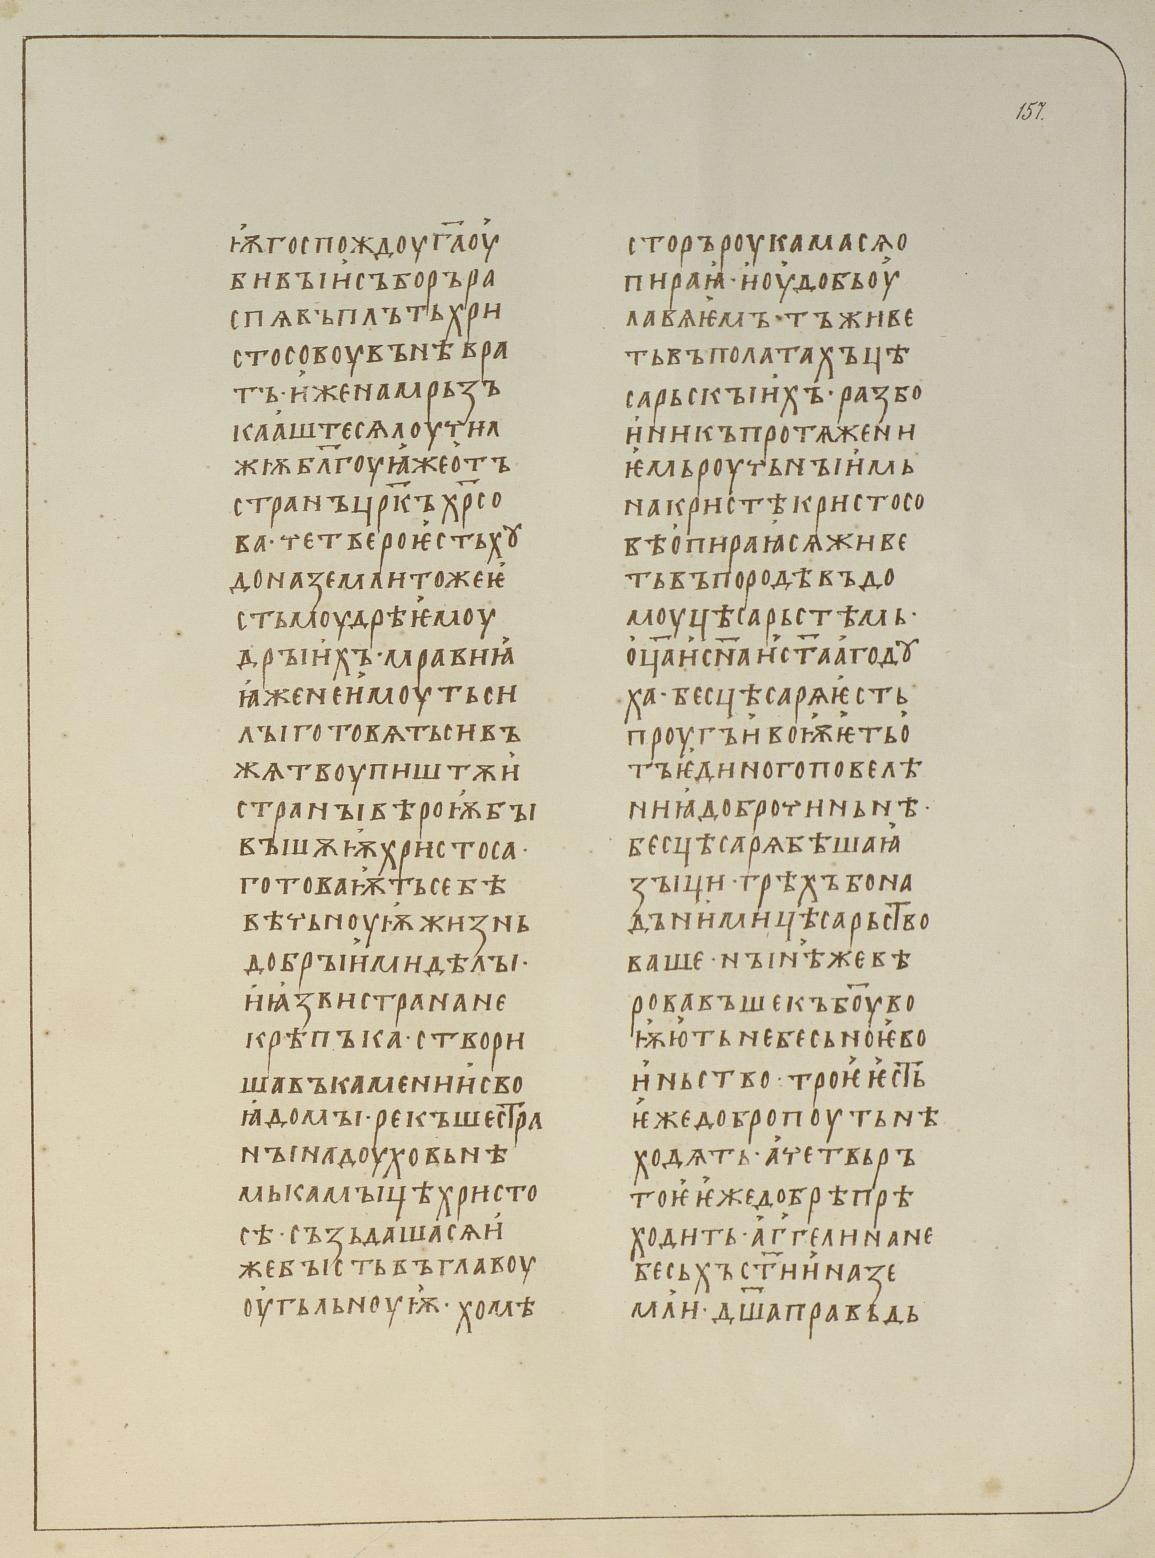 157.
ѭ҆господоуг҃лоу҆
бивъіи҆съборъра
спѧвъплътьхри
стосовоувънѣвра
тъ·и҆женамрьзъ
каа҆штесѧлоутил
жѭбл҃гоуꙗ҆жео҆тъ
странъцрк҃ъхр҃со
ва·четвероѥ҆стьхꙋ
доназемлитожеѥ҆
стьмоудрѣѥ҆моу
дръіи҆хъ·мравиꙗ҆
ꙗ҆женеи҆моутьси
лъіготовѧтьсивъ
жѧтвоупиштѫи҆
странъівѣроѭ҆бъі
въшѫѭ҆христоса·
готоваѭ҆тьсебѣ
вѣчьноуѭ҆жизнь
добръіи҆мидѣлъі·
и҆ꙗ҆звистранане
крѣпъка·створи
шавъкамении҆сво
ꙗ҆домъі·рекъшест҃ра
нъінадоуховьнѣ
мькамъіцѣхристо
сѣ·съзьдашасѧи҆
жебъістьвъглавоу
оу҆гъльноуѭ҆·хомѣ
сторъроукамасѧо
пираꙗ҆·и҆оу҆добьоу҆
лавѧѥ҆мъ·тъживе
тьвъполатахъцѣ
сарьскъіи҆хъ·разбо
и҆никъпротѧжени
ѥ҆мьроучьнъіи҆мь
накристѣкристосо
вѣо҆пираꙗ҆сѧживе
тьвъпородѣвъдо
моуцѣсарьстѣмь·
о҆ц҃аи҆сн҃аи҆ст҃аа҆годꙋ
ха·бесцѣсарѧѥ҆сть
проугъи҆воѭ҆ѥ҆тьо҆
тъѥ҆диногоповелѣ
ниꙗ҆доброчиньнѣ·
бесцѣсарѧбѣшаꙗ҆
зъіци·грѣхъбона
дъни҆мицѣсарьст҃во
ваше·нъінѣжевѣ
ровавъшекъбо҃уво
ѭ҆ю҆тьнебесьноѥ҆во
и҆ньство·троѥ҆ѥ҆ст҃ь
ѥ҆жедобропоутьнѣ
ходѧть·а҆четвьръ
тоѥ҆ѥ҆жедобрѣпрѣ
ходить·а҆г҆гелинане
бесьхъст҃ии҆назе
мл҆и·дш҃аправьдь